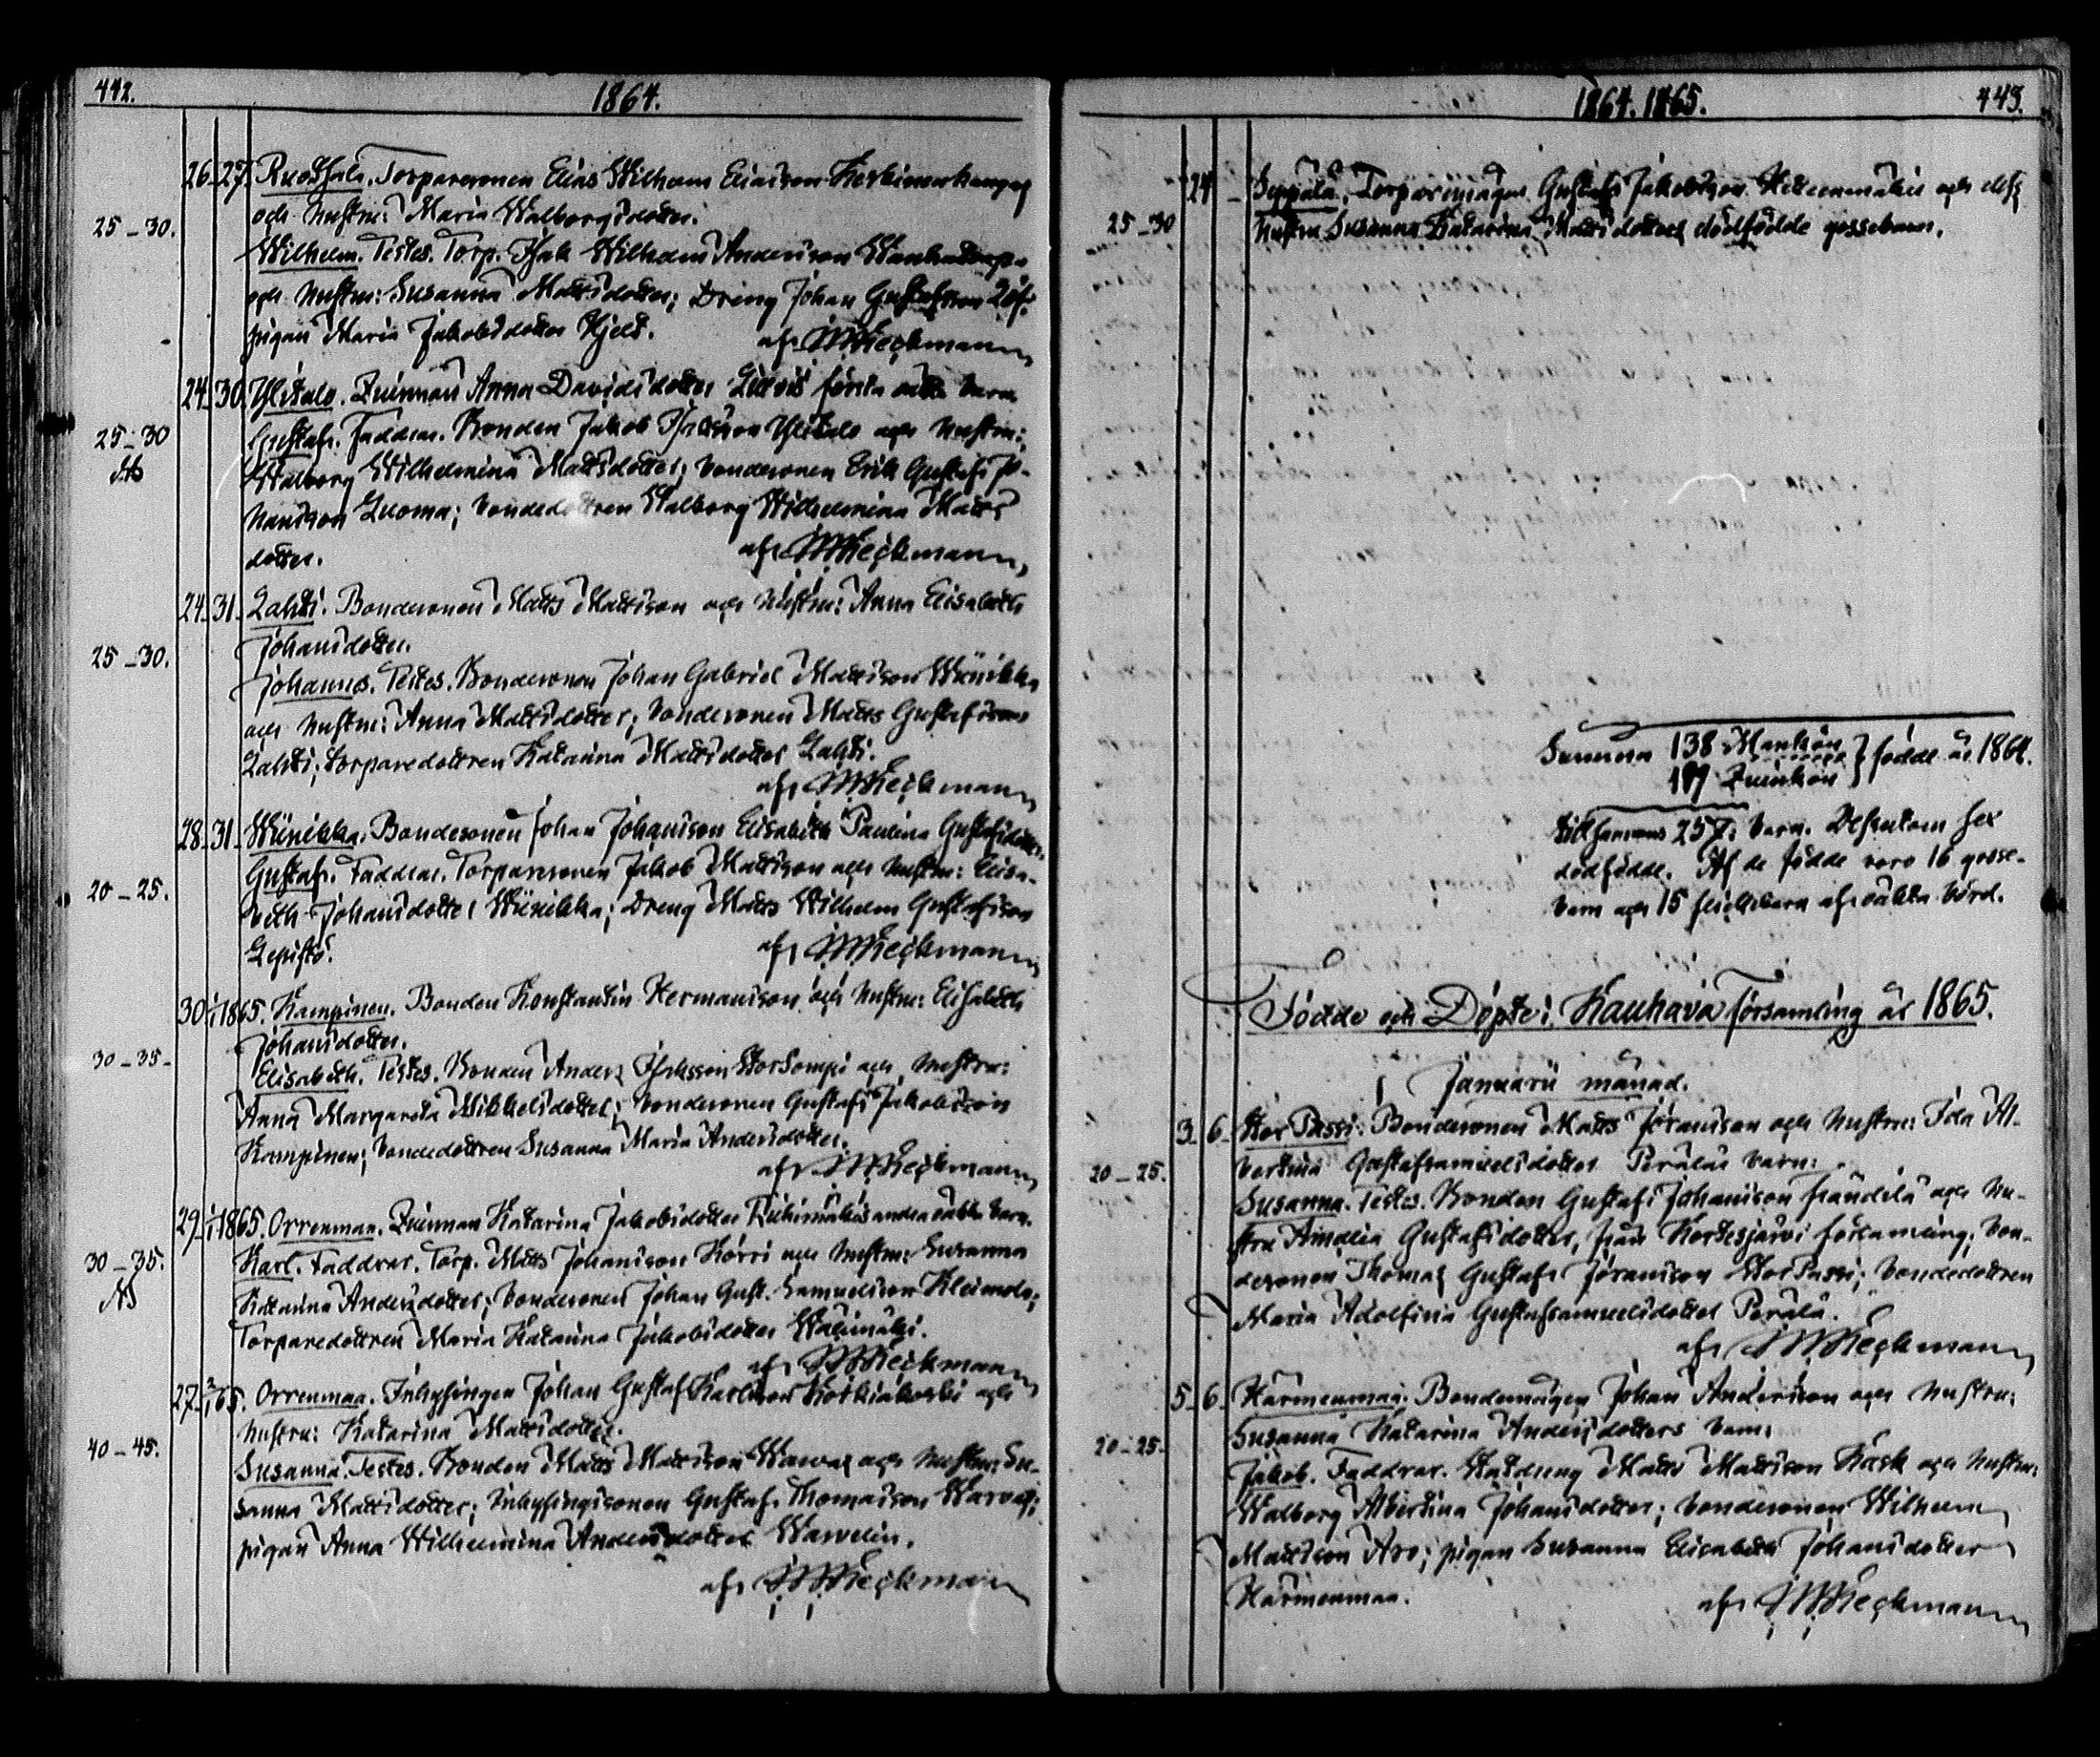 442.
1864.
26. 27. Torparesonen Elias Wilhelm Eliasson
och hustru: Maria Walborgsdotter.
25 – 30.
Wilhelm. Testes. Torp. Isak Wilhelm Andersson
och hustru: Susanna Mattsdotter; Dreng Johan Gustafsson
pigan Maria Jakobsdotter
24. 30. Ylitalo. Quinnan Anna Davidsdotter första oäkta barn
25 – 30
Gustaf. Faddrar. Bonden Jakob Ylitalo och hustru:
Walborg Wilhelmina Mattsdotter; bondesonen Erik Gustaf Jo-
hansson Luoma; bondedottren Walborg Wilhelmina Matts
dotter.
24. 31. Lahti. Bondesonen Matts Mattsson och hustru: Anna Elisabeth
Johansdotter.
25 – 30.
Johannes. Testes. Bondesonen Johan Gabriel Mattsson Wänikka
och hustru: Anna Mattsdotter; bondesonen Matts Gustafsson
Lahti; torparedottren Katarina Mattsdotter Lahti.
28. 31. Bondesonen Johan Johansson Elisabeth Paulina Gustafsdotter.
Gustaf. Faddrar. Torparesonen Jakob Mattsson och hustru: Elisa-
20 – 25.
beth Johansdotter; Dreng Matts Wilhelm Gustafsson
Lepistö.
30 1/1 1865. Kampinen. Bonden Konstantin Hermansson och hustru: Elisabeth
Johansdotter.
30 – 35.
Elisabeth. Testes. Bonden Anders Isaksson StorSompi och hustru:
Anna Margareta Mikkelsdotter; bondesonen Gustaf Jakobsson
Kampinen; bondedottren Susanna Maria Andersdotter.
29 1/1 1865. Orrenmaa. Quinnan Katarina Jakobsdotter andra oäkta barn.
Karl. Faddrar. Torp. Matts Johansson Körri och hustru: Susanna
30 – 35.
Katarina Andersdotter; bondesonen Johan Gust. Samuelsson Kleimola;
Torparedottren Maria Katarina Jakobsdotter Wälimäki.
27 65. Orrenmaa. Inhysingen Johan Gustaf Karlsson Koskiakoski och
hustru: Katarina Mattsdotter.
40 – 45.
Susanna. Testes. Bonden Matts Mattsson och hustru: Su-
sanna Mattsdotter; Inhysingssonen Gustaf Thomasson
pigan Anna Wilhelmina Andersdotter
1864. 1865.
443.
24 – Seppälä. Torparemågen Gustaf Jakobsson och dess
25 – 30
hustru Susanna Katarina Mattsdotters dödfödde gossebarn.
Summa 138 Mankön
119 Quinkön } födde år 1864.
Tillsammans 257 barn. Dessutom sex
dödfödde. Af de födde voro 16 gosse-
barn och 15 flickebarn af oäkta börd.
Födde och Döpte i Kauhava församling år 1865.
Januarii månad.
3. 6. Stor Passi. Bondesonen Matts Jöransson och hustru: Ida Al-
20 – 25.
bertina Gustafsamuelsdotter Peräläs barn:
Susanna. Testes. Bonden Gustaf Johansson och hu-
stru Amalia Gustafsdotter, från Kortesjärvi församling; bon-
desonen Thomas Gustaf Jöransson StorPassi; bondedottren
Maria Adolfina Gustafsamuelsdotter Perälä.
5. 6. Härmenmaa. Bondemågen Johan Andersson och hustru:
20 – 25.
Susanna Katarina Andersdotters barn:
Jakob. Faddrar. Matts Mattsson Kask och hustru:
Walborg Albertina Johansdotter; bondesonen Wilhelm
Mattsson Aro; pigan Susanna Elisabeth Johansdotter
Härmenmaa.